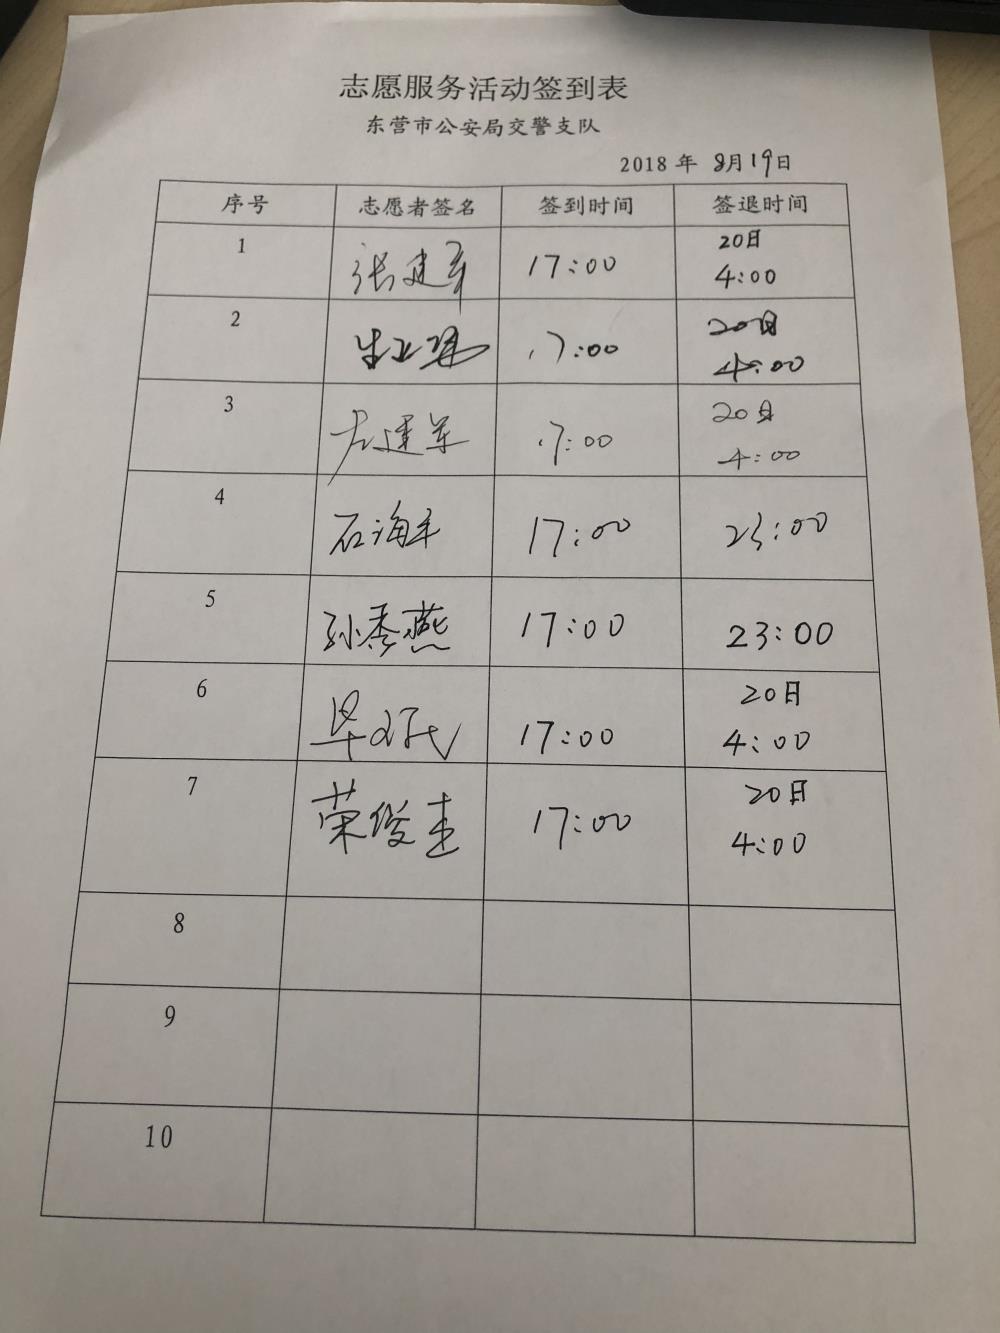 志愿服务活动签到表
东营市公安局交警支队
2018 年 8月19日
序号 志愿者签名 签到时间 签退时间
1 张建军 17:00 20日 4:00
2 17:00 20日 4:00
3 左建军 17:00 20日 4:00
4 石海军 17:00 23:00
5 孙秀燕 17:00 23:00
6 17:00 20日 4:00
7 荣俊圭 17:00 20日 4:00
8
9
10